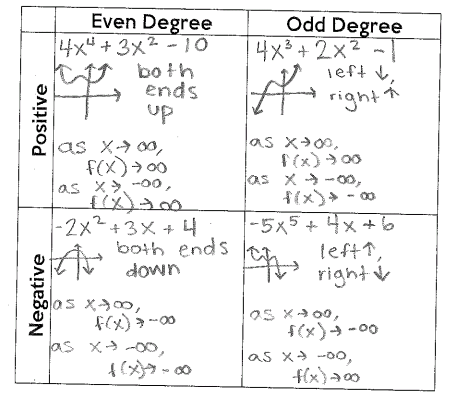 Even Degree
Odd Degree
Positive
4x⁴ + 3x² - 10
both
ends
up
as x→∞,
f(x)→∞
as x→ -∞,
f(x)→∞
4x³ + 2x² - 1
left ↓,
right ↑
as x→∞,
f(x)→∞
as x→ -∞,
f(x)→ -∞
Negative
-2x² + 3x + 4
both ends
down
as x→∞,
f(x)→ -∞
as x→ -∞,
f(x)→ -∞
-5x⁵ + 4x + 6
left ↑,
right ↓
as x→∞,
f(x)→ -∞
as x→ -∞,
f(x)→∞